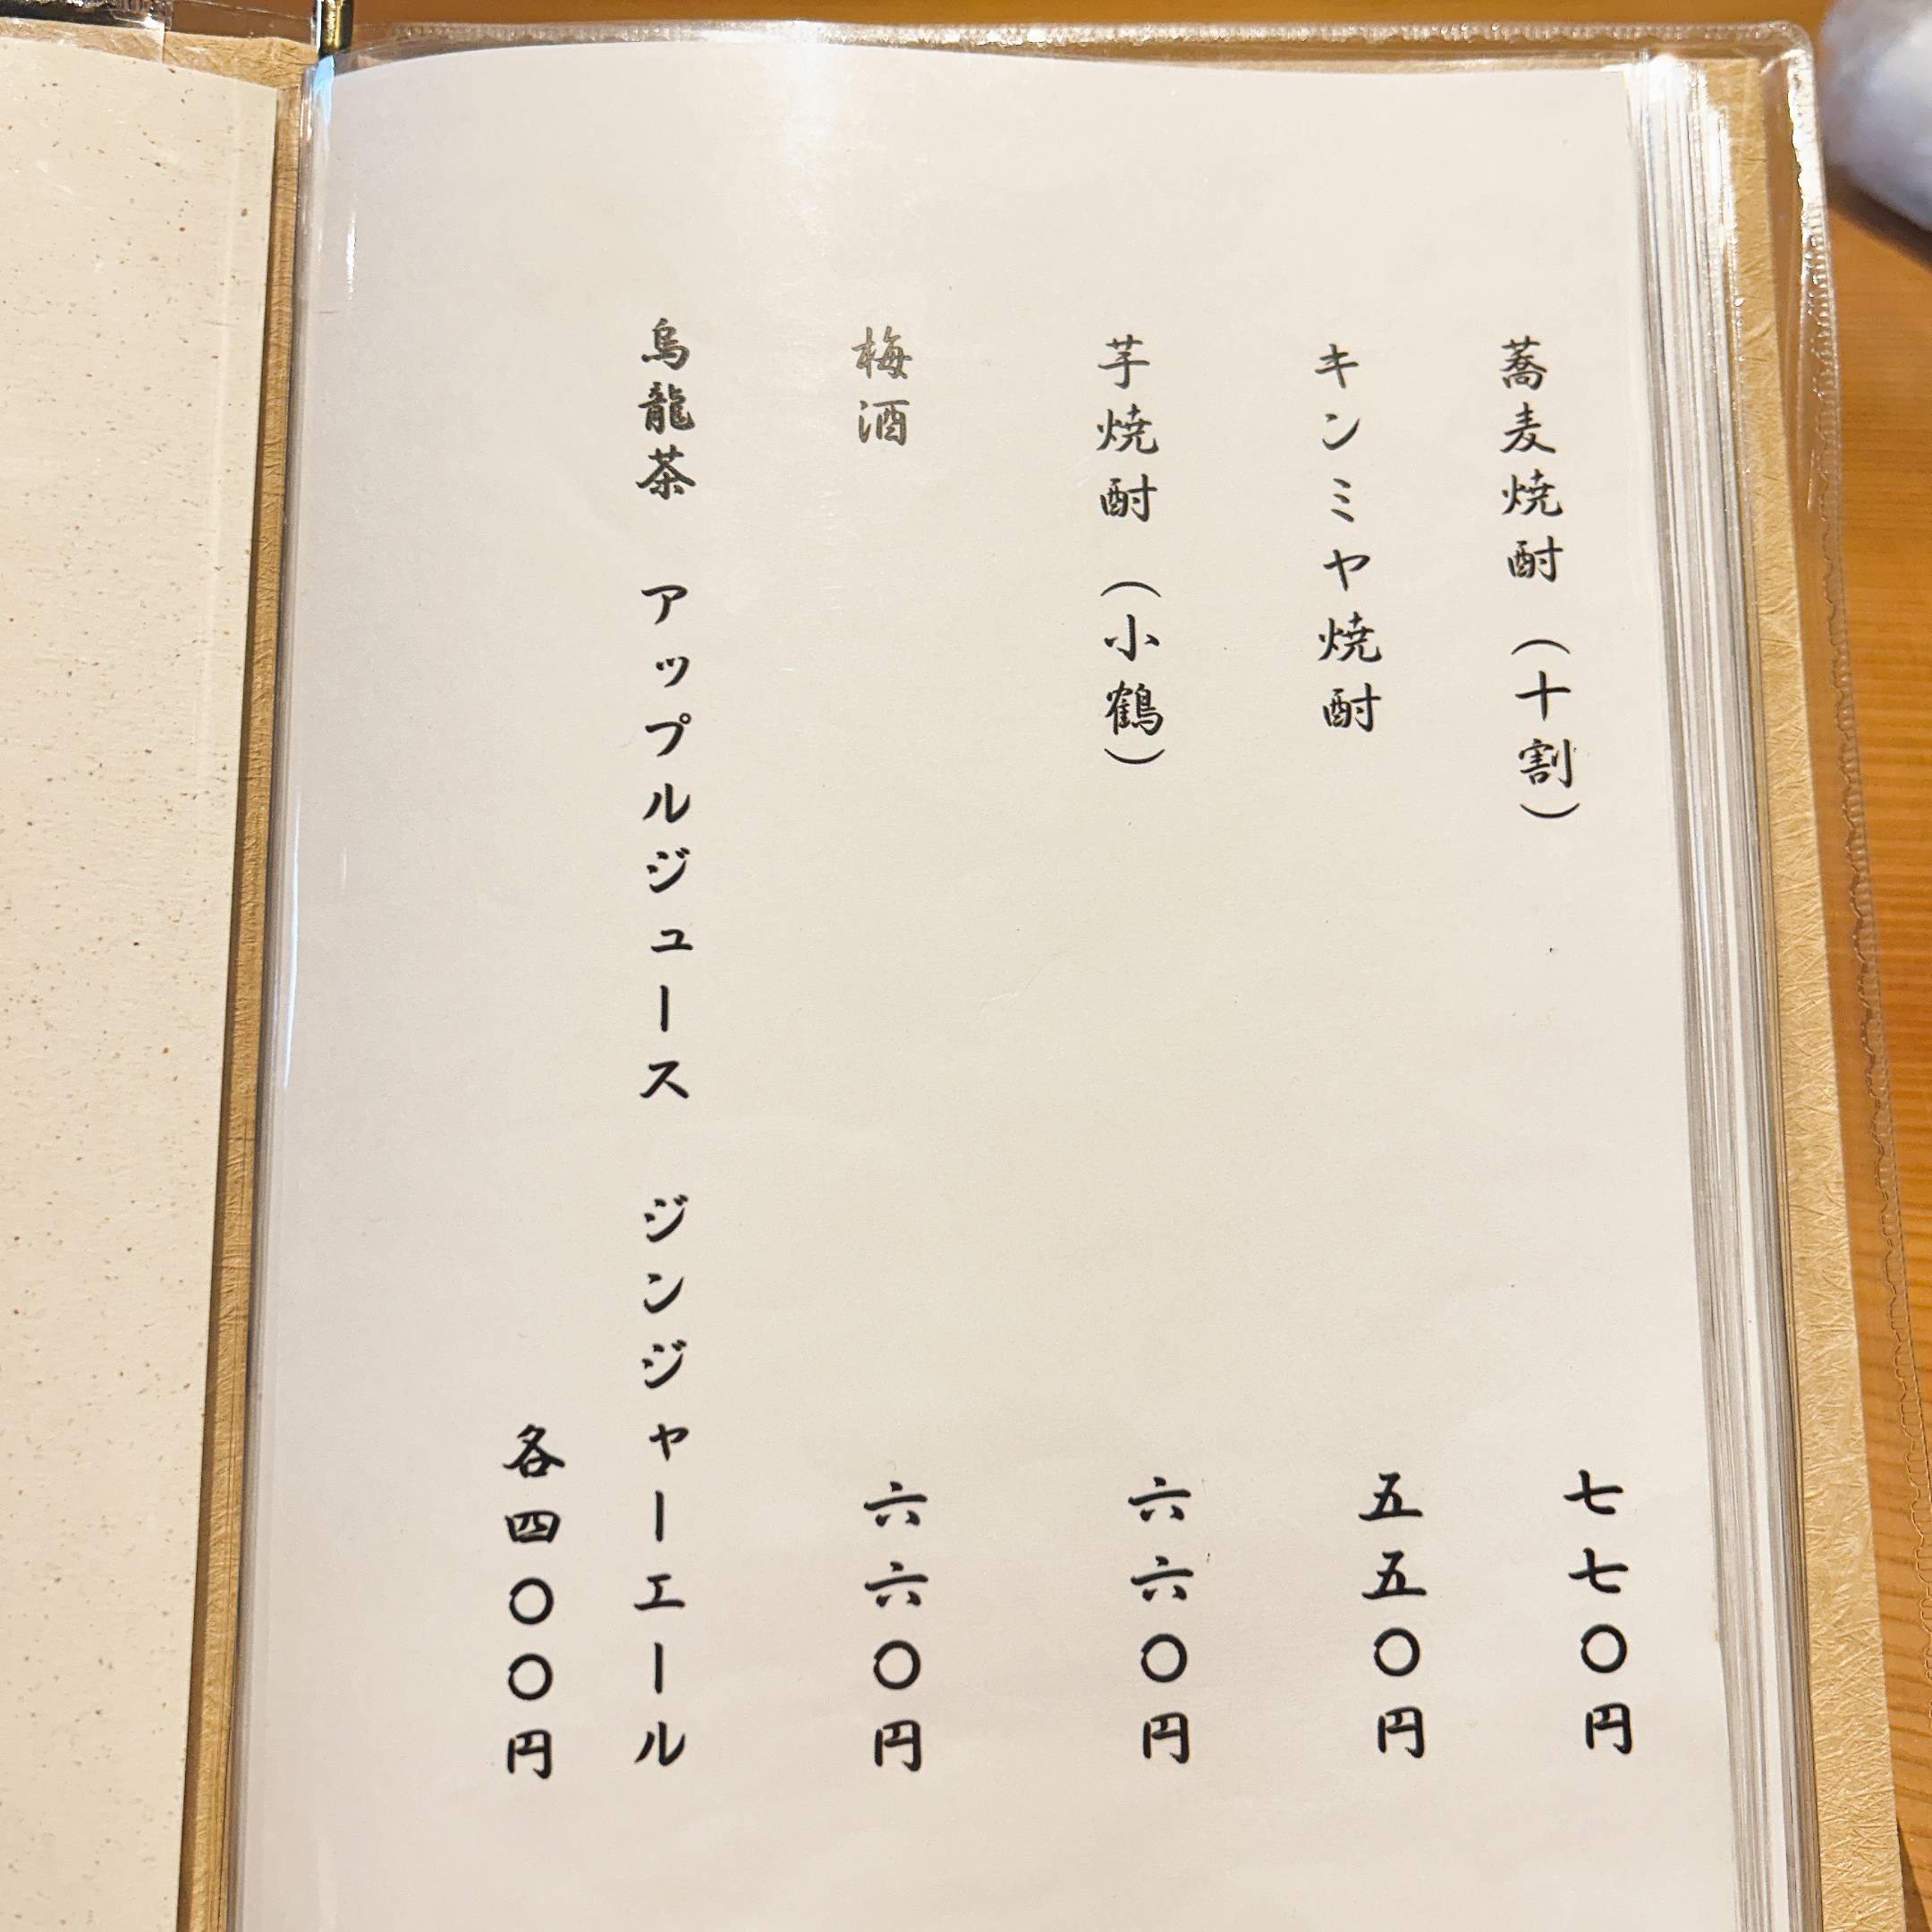 蕎麦焼酎（十割） 七七〇円
キンミヤ焼酎 五五〇円
芋焼酎（小鶴） 六六〇円
梅酒 六六〇円
烏龍茶 アップルジュース ジンジャーエール
各四〇〇円